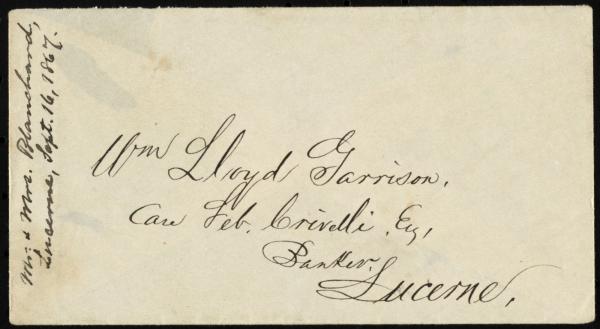 Mr. & Mrs. Blanchard,
Lucerne, Sept. 16, 1867.
Wm Lloyd Garrison.
Care Feb. Crivelli Esq,
Banker.
Lucerne.